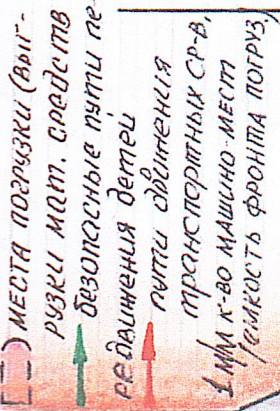 МЕСТА ПОГРУЗКИ (ВЫГ-
РУЗКИ МАТ. СРЕДСТВ
БЕЗОПАСНЫЕ ПУТИ ПЕ-
РЕДВИЖЕНИЯ ДЕТЕЙ
ПУТИ ДВИЖЕНИЯ
ТРАНСПОРТНЫХ СР-В,
1 М/М К-ВО МАШИНО-МЕСТ
/ЕМКОСТЬ ФРОНТА ПОГРУЗ.